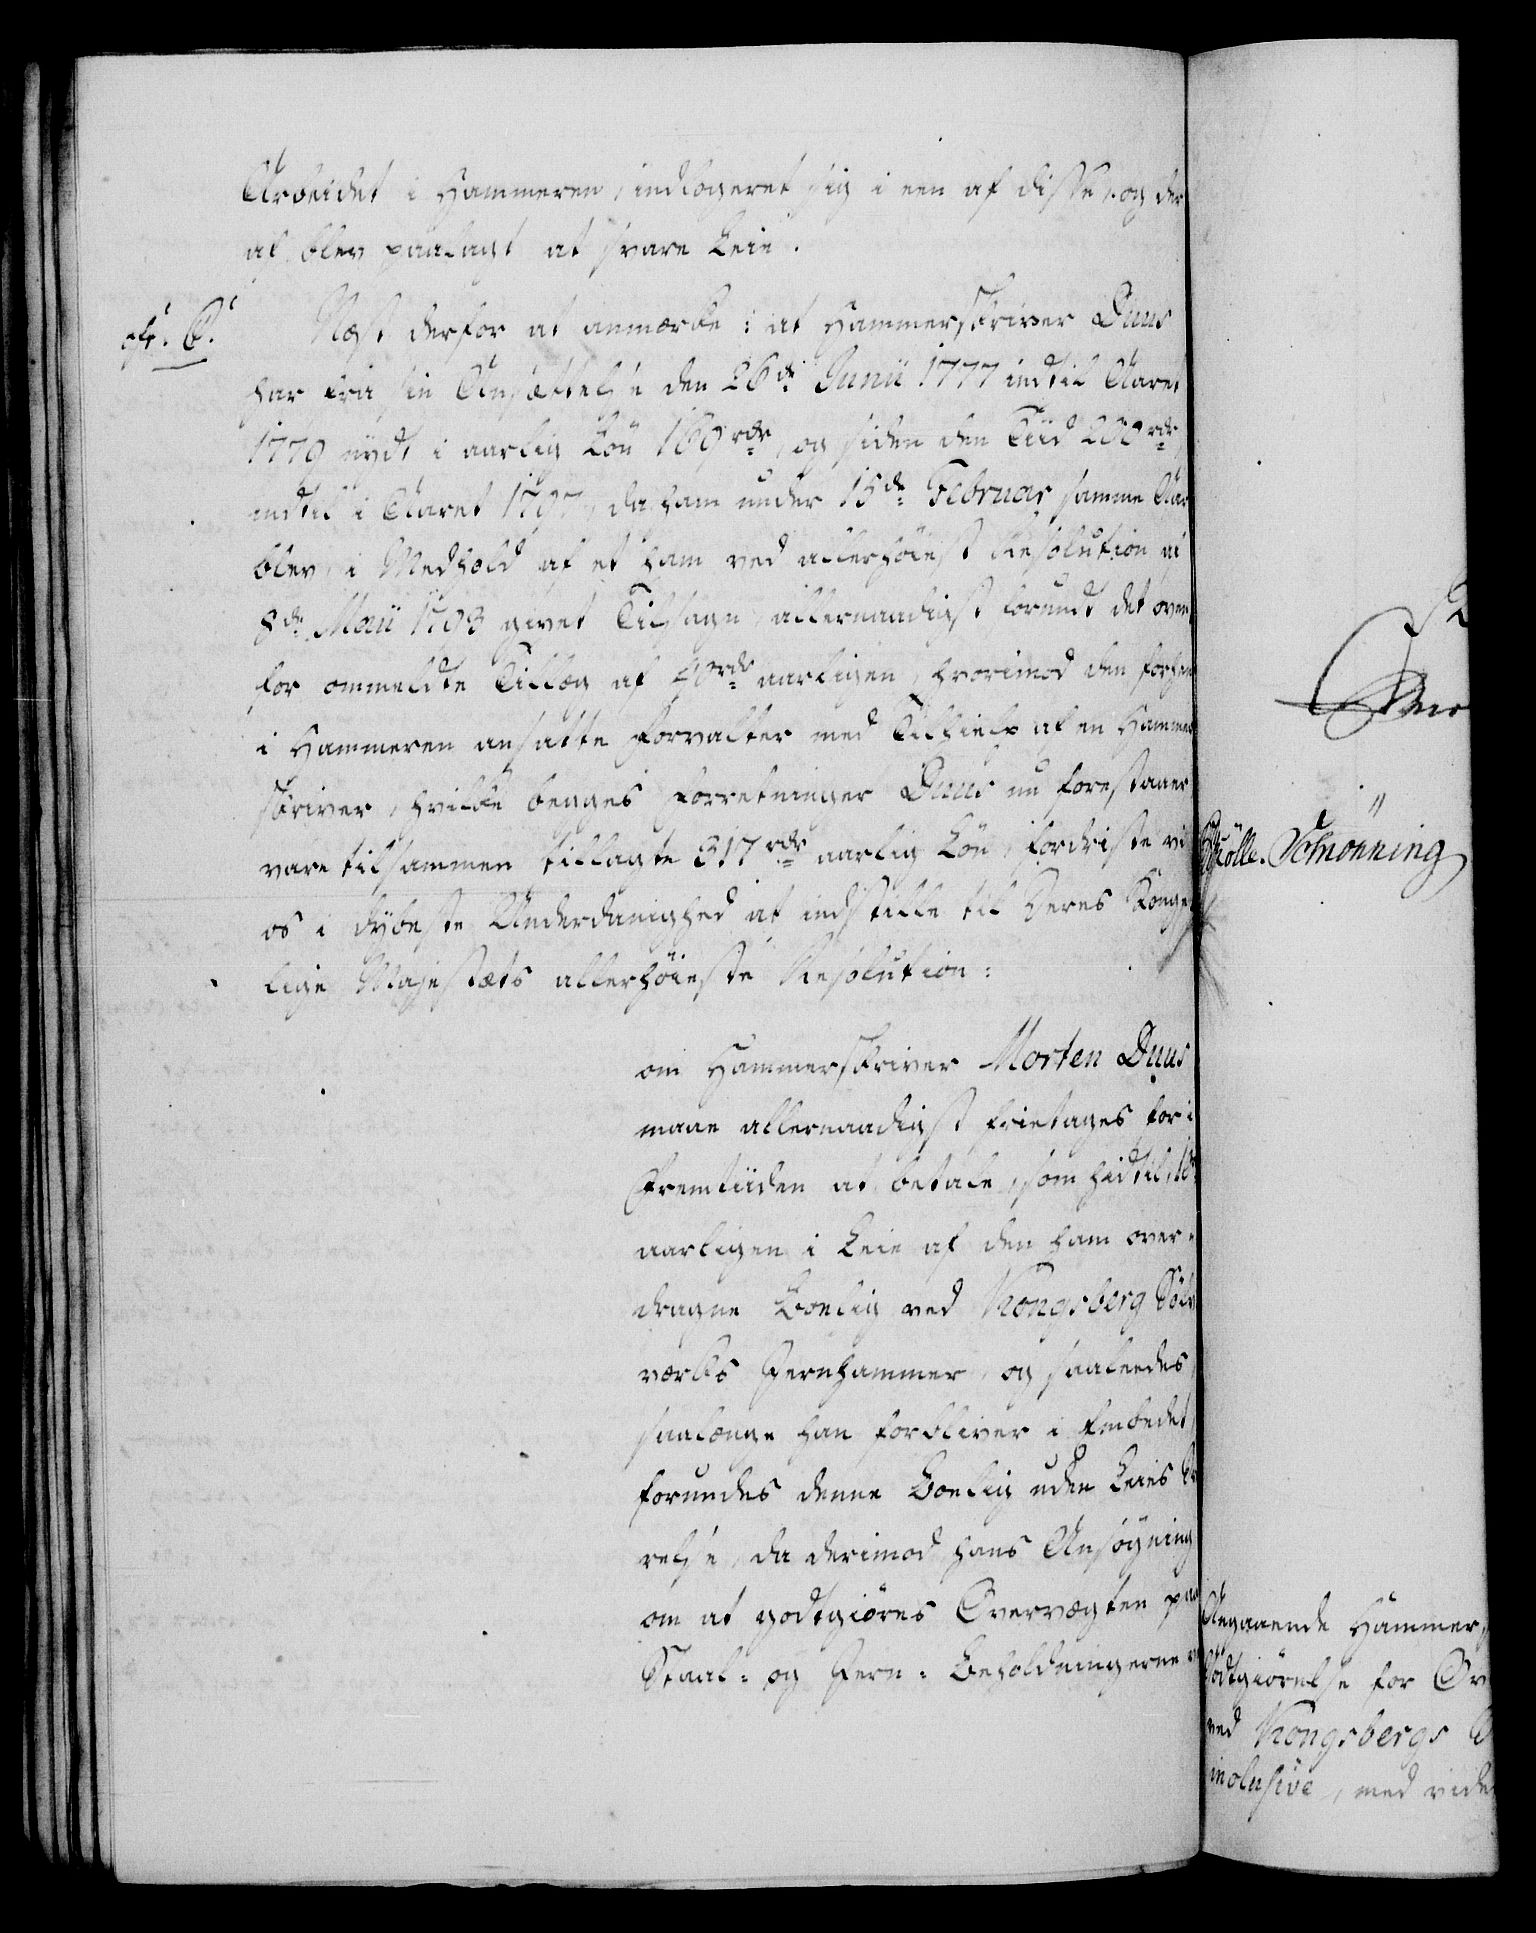 Arbeidet i Hammeren, indlogeret sig i een af disse, og der
af blev paalagt at svare Leie.
cfr. C. Næst derfor at anmærke: at Hammerskriver Duus
har fra sin Ansættelse den 26de Junii 1777 indtil Aaret
1779 nydt i aarlig Løn 169 rdr, og siden den Tiid 200 rdr,
indtil i Aaret 1797, da ham under 15de Februar samme Aar
blev, i Medhold af et ham ved allerhøiest Resolution af
8de Maii 1793 givet Tilsagn, allernaadigst forundt det oven
for ommeldte Tillæg af 40 rdr aarligen, hvorimod den forhen
i Hammeren ansatte Forvalter med Tilhielp af en Hammer
skriver, hvilke begges Forretninger Duus nu forestaaer
vare tilsammen tillagte 317 rdr aarlig Løn, fordriste vi
os i dybeste Underdanighed at indstille til Deres Konge
lige Majestæts allerhøieste Resolution:
om Hammerskriver Morten Duus
maae allernaadigst fritages for i
Fremtiden at betale, som hidtil,
aarligen i Leie af den ham over
dragne Boelig ved Kongsberg Sølv
værks Jernhammer, og saaledes,
saalænge han forbliver i Embedet,
forundes denne Boelig uden Leies
relse, da derimod hans Ansøgning
om at godtgiøres Overvægten paa
Staal- og Jern-Beholdningerne
Schönning
Angaaende Hammer
Godtgiørelse for Ov
ved Kongsbergs
inclusive, med vide